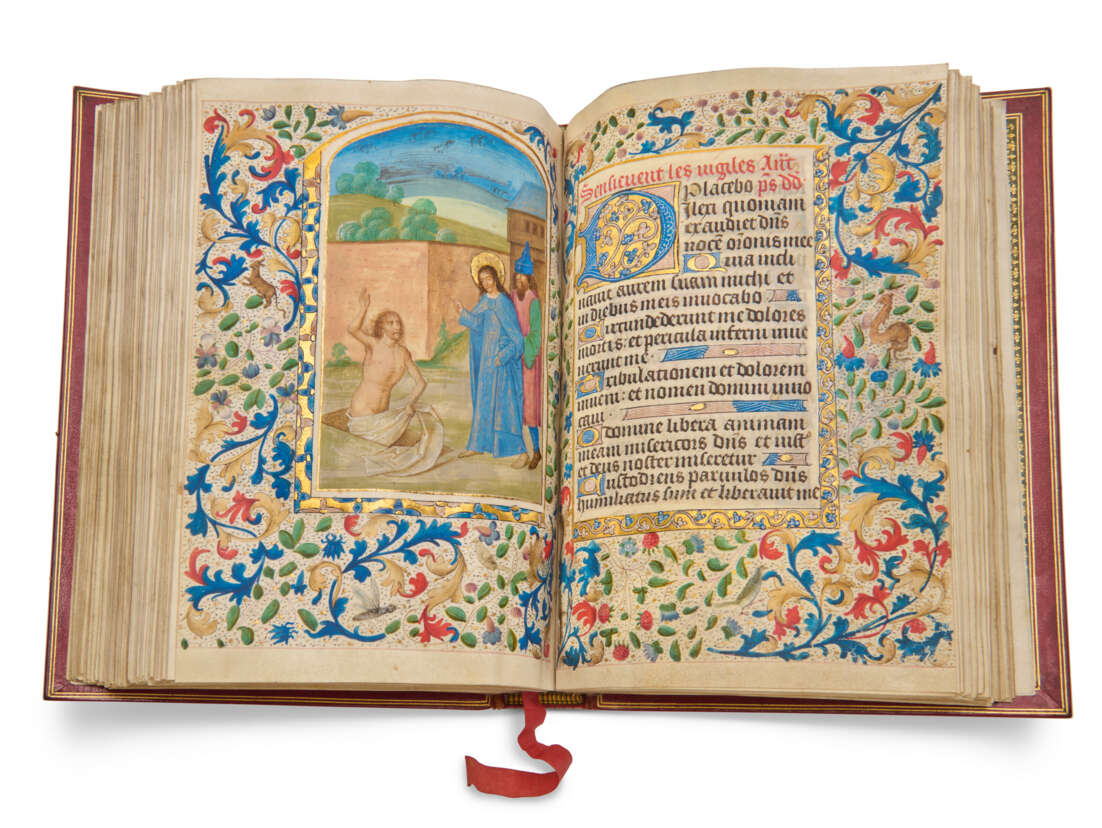 Sensieuent les vigiles Añt
Placebo ps dd
Dilexi quoniam
exaudiet dñs
nocẽ orõnis mee
Quia incli
nauit aurem suam michi et
in diebus meis inuocabo
Circundederunt me dolores
mortis : et pericula inferni inue
nerunt me
Tribulationem et dolorem
inueni : et nomen domini inuo
caui
O domine libera animam
meam misericors dñs et iust
et deus noster miseretur
Custodiens paruulos dñs
humiliatus sum et liberauit me